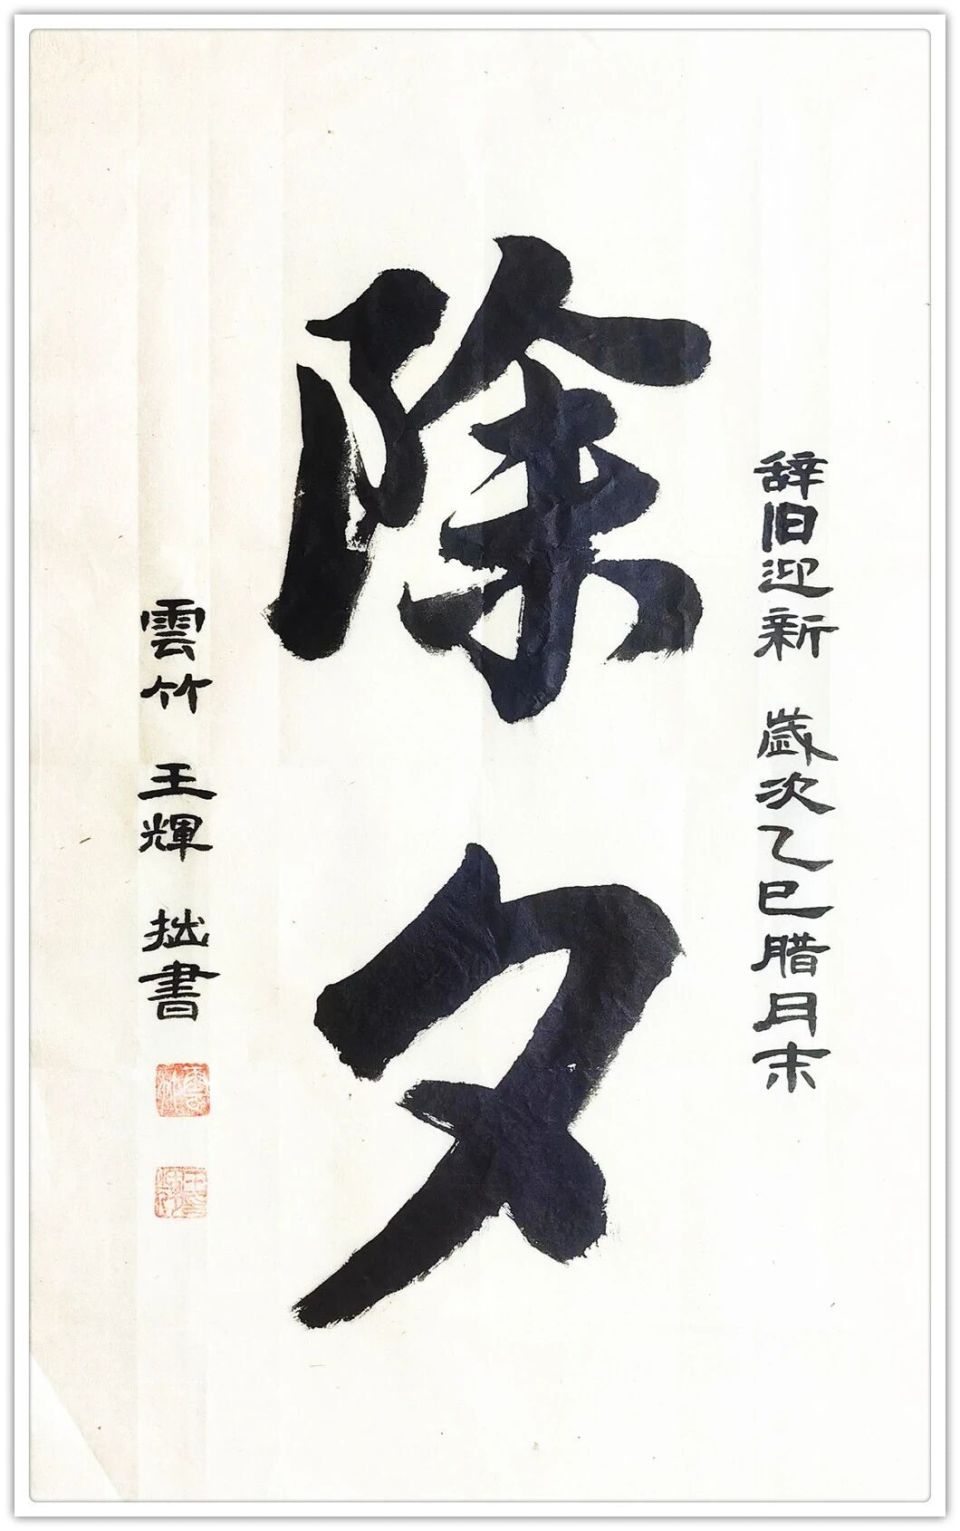 辞旧迎新 歲次乙巳腊月末
除夕
雲竹 王輝 拙書